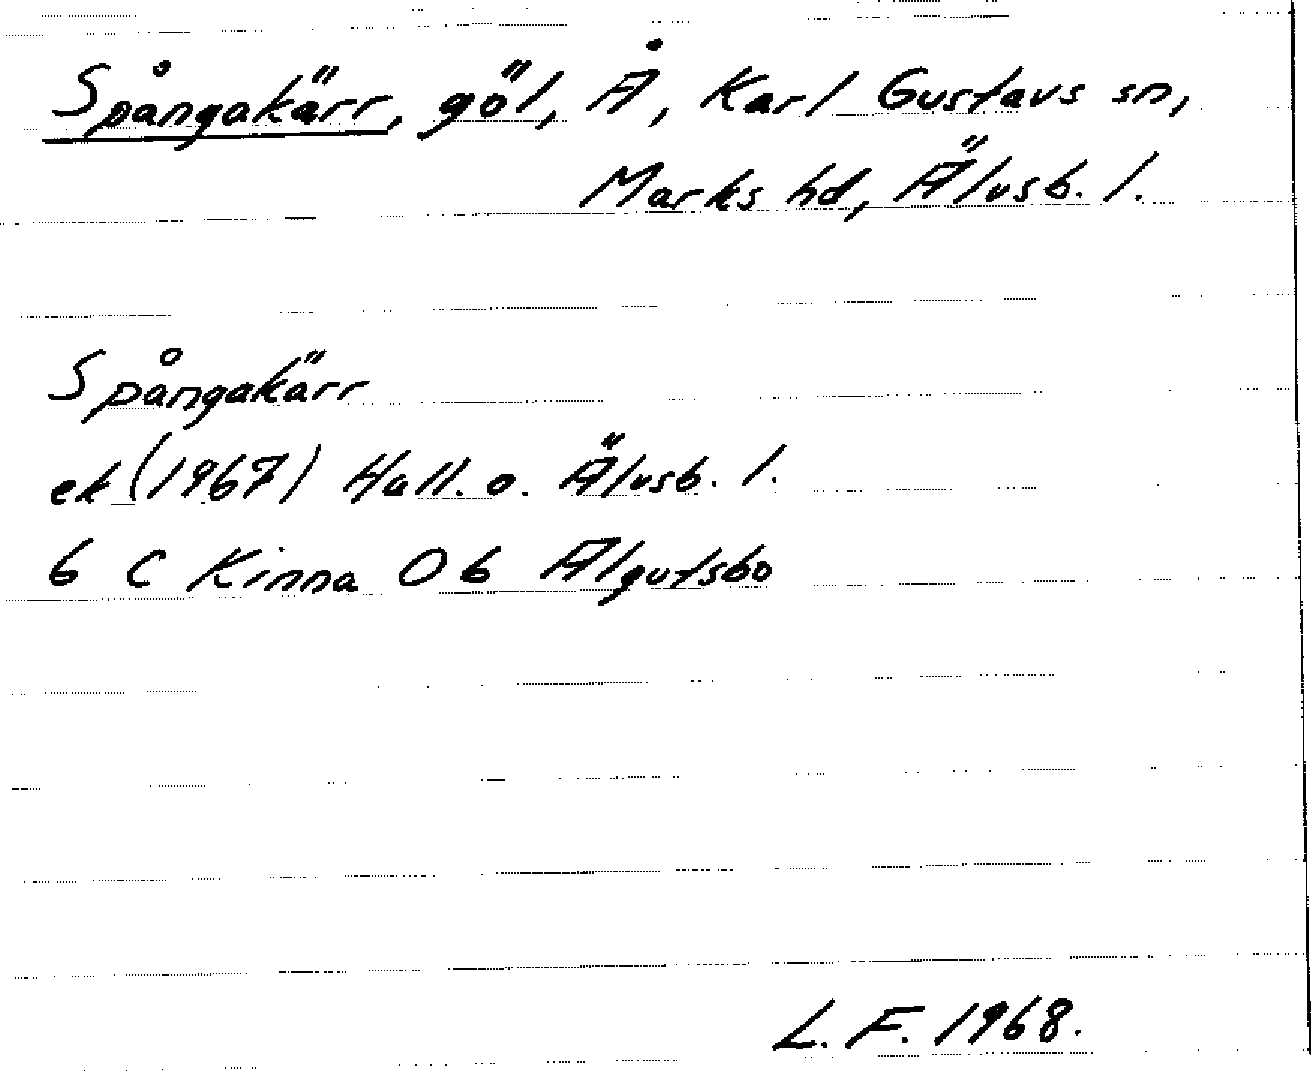 Spångakärr, göl, Å, Karl Gustavs sn,
Marks hd, Älvsb. l.
Spångakärr
ek (1967) Hall. o. Älvsb. l.
6 C Kinna 0 b Älgutsbo
L. F. 1968.